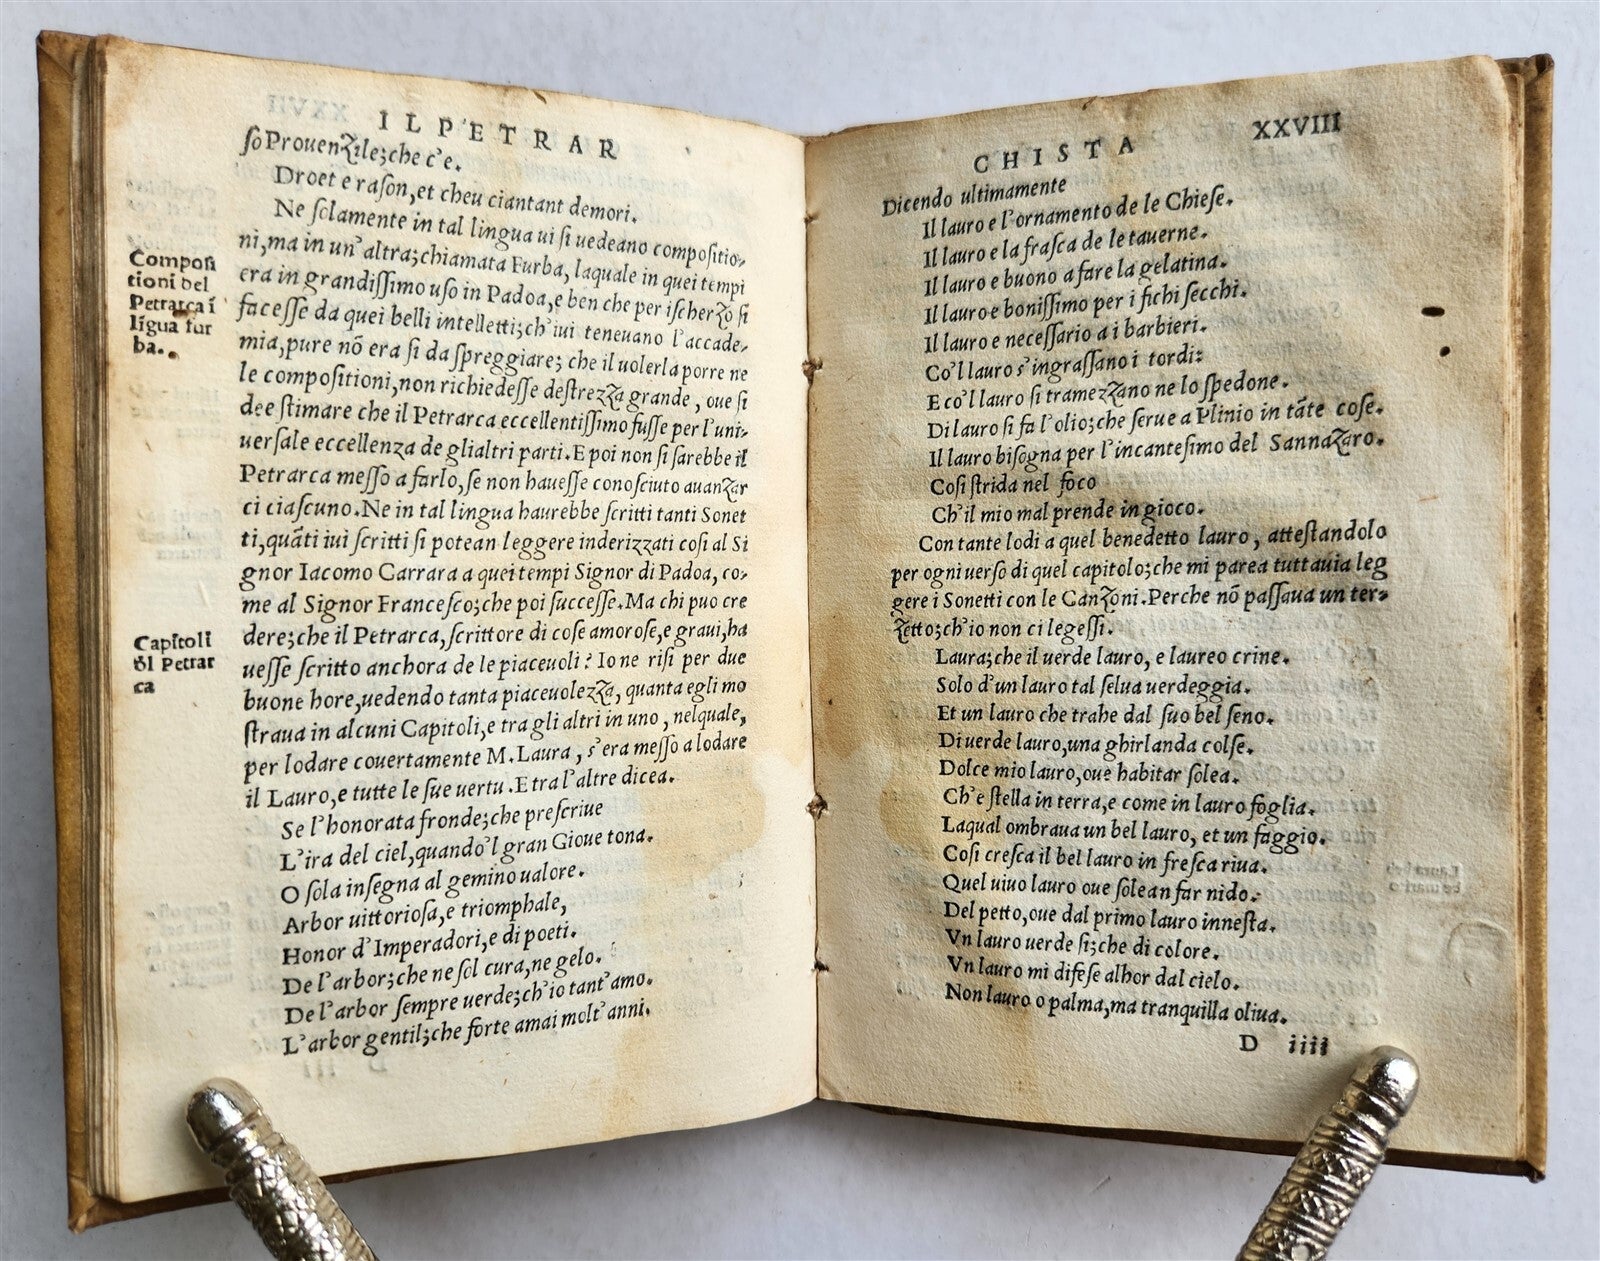 IL PETRAR
ſo ProuenZile;che c'e.
Droet e raſon,et cheu ciantant demori.
Ne ſolamente in tal lingua ui ſi uedeano compoſitio-
ni,ma in un'altra;chiamata Furba, laquale in quei tempi
era in grandiſſimo uſo in Padoa,e ben che per iſcherZo ſi
faceſſe da quei belli intelletti;ch'iui teneuano l'accade-
mia,pure nō era ſi da ſpreggiare; che il uolerla porre ne
le compoſitioni,non richiedeſſe deſtreZZa grande, oue ſi
dee ſtimare che il Petrarca eccellentiſſimo fuſſe per l'uni-
uerſale eccellenza de gli altri parti. E poi non ſi ſarebbe il
Petrarca meſſo a farlo,ſe non haueſſe conoſciuto auanZar
ci ciaſcuno. Ne in tal lingua haurebbe ſcritti tanti Sonet
ti,quāti iui ſcritti ſi potean leggere inderizzati coſi al Si
gnor Iacomo Carrara a quei tempi Signor di Padoa, co-
me al Signor Franceſco;che poi ſucceſſe. Ma chi puo cre
dere;che il Petrarca, ſcrittore di coſe amoroſe,e graui,ha
ueſſe ſcritto anchora de le piaceuoli? Io ne riſi per due
buone hore,uedendo tanta piaceuoleZZa, quanta egli mo
ſtraua in alcuni Capitoli,e tra gli altri in uno, nelquale,
per lodare couertamente M. Laura, s'era meſſo a lodare
il Lauro,e tutte le ſue uertu. E tra l'altre dicea.
Se l'honorata fronde;che preſcriue
L'ira del ciel,quando'l gran Gioue tona.
O ſola inſegna al gemino ualore.
Arbor uittorioſa,e triomphale,
Honor d'Imperadori,e di poeti.
De l'arbor;che ne ſol cura,ne gelo.
De l'arbor ſempre uerde;ch'io tant'amo.
L'arbor gentil;che forte amai molt'anni.
Compoſi
tioni del
Petrarca ī
līgua fur
ba.
Capitoli
d̄l Petrar
ca
CHISTA
XXVIII
Dicendo ultimamente
Il lauro e l'ornamento de le Chieſe.
Il lauro e la fraſca de le tauerne.
Il lauro e buono a fare la gelatina.
Il lauro e boniſſimo per i fichi ſecchi.
Il lauro e neceſſario a i barbieri.
Co'l lauro s'ingraſſano i tordi:
E co'l lauro ſi trameZZano ne lo ſpedone.
Di lauro ſi fa l'olio;che ſerue a Plinio in tāte coſe.
Il lauro biſogna per l'incanteſimo del SannaZaro.
Coſi ſtrida nel foco
Ch'il mio mal prende in gioco.
Con tante lodi a quel benedetto lauro, atteſtandolo
per ogni uerſo di quel capitolo;che mi parea tuttauia leg
gere i Sonetti con le CanZoni. Perche nō paſſaua un ter-
Zetto;ch'io non ci legeſſi.
Laura;che il uerde lauro, e laureo crine.
Solo d'un lauro tal ſelua uerdeggia.
Et un lauro che trahe dal ſuo bel ſeno.
Di uerde lauro,una ghirlanda colſe.
Dolce mio lauro,oue habitar ſolea.
Ch'e ſtella in terra,e come in lauro foglia.
Laqual ombraua un bel lauro, et un faggio.
Coſi creſca il bel lauro in freſca riua.
Quel uiuo lauro oue ſolean far nido.
Del petto,oue dal primo lauro inneſta.
Vn lauro uerde ſi;che di colore.
Vn lauro mi difeſe alhor dal cielo.
Non lauro o palma,ma tranquilla oliua.
D iiii